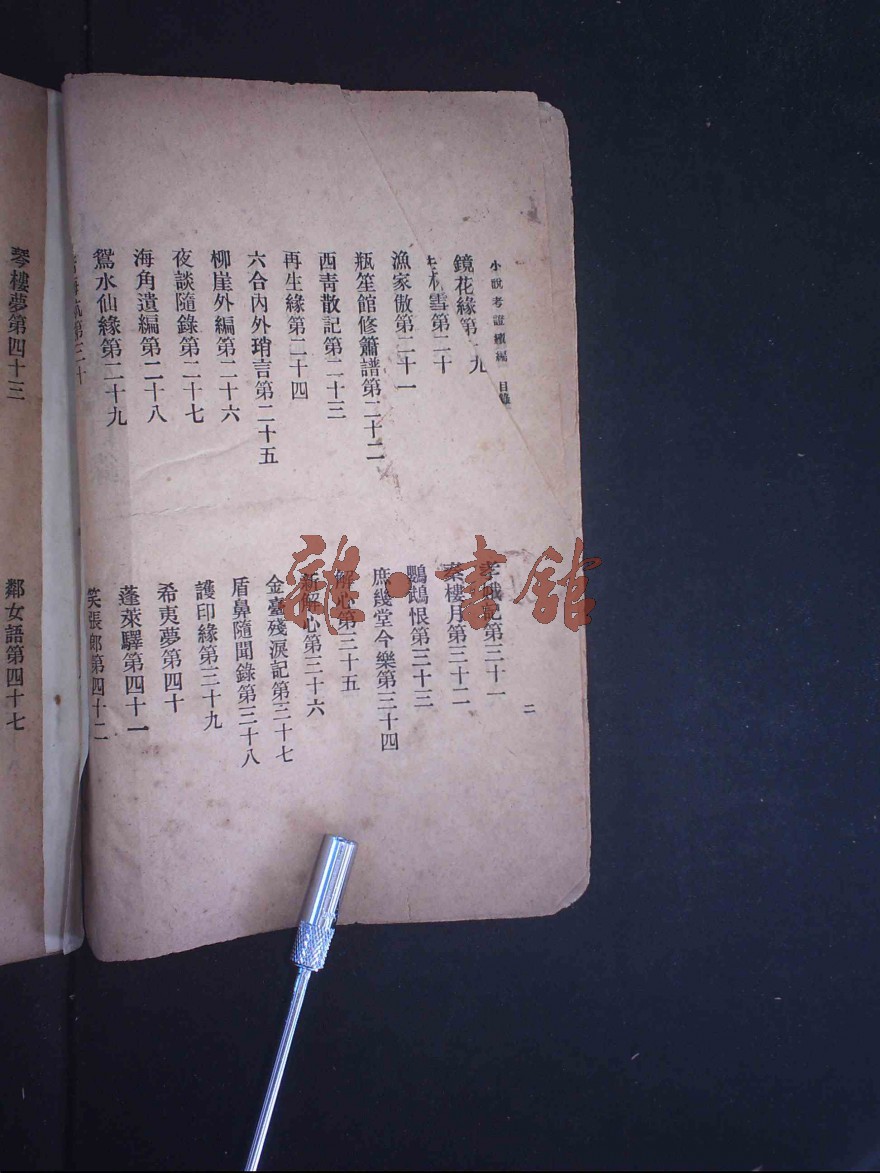 小說考證續編 目錄
鏡花緣第 九
林雪第二十
漁家傲第二十一
瓶笙館修簫譜第二十二
西青散記第二十三
再生緣第二十四
六合內外瑣言第二十五
柳崖外編第二十六
夜談隨錄第二十七
海角遺編第二十八
鴛水仙緣第二十九
第三十
孝 記第三十一
秦樓月第三十二
鸚鵡恨第三十三
庶幾堂今樂第三十四
解心第三十五
新解心第三十六
金臺殘淚記第三十七
盾鼻隨聞錄第三十八
護印緣第三十九
希夷夢第四十
蓬萊驛第四十一
笑張郎第四十二
二
琴樓夢第四十三
鄰女語第四十七
雜·書館